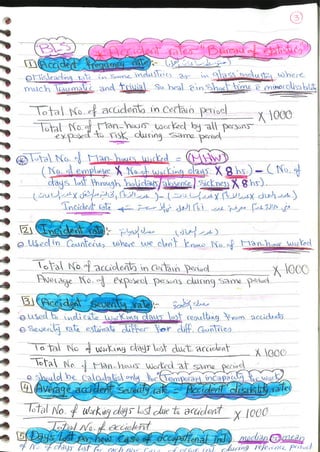 3
BLS
* Accident rates "Bureau of statistics"
1] Accident frequency rate:
Misleading rate in some industries as in glass industry where
much traumatic and trivial so heal e in short time e minor disability
Total No. of accidents in certain period X 1000
Total No. of Man-hours worked by all persons
exposed to risk during same period
Total No. of Man-hours worked = (MHW)
(No. of employee X No. of working days X 8 hrs) - (No. of
days lost through holiday/absense/sickness X 8 hrs)
Incident rate
2] Incident rate:
Used in Countries where we don't know No. of Man-hour worked
Total No. of accidents in certain period X 1000
Average No. of exposed persons during same period
3] Accident severity rate:
used to indicate working days lost resulting from accidents
Severity rate estimate differ for diff. Countries
Total No of working days lost due to accident X 1000
Total No. of Man-hours worked at same period
should be calculated only for Temporary incapacity to work
4] Average accident severity rate = Accident disability rate
Total No. of Working days lost due to accident X 1000
Total No. of accident
5] Days lost per new case of occupational inj. median or mean